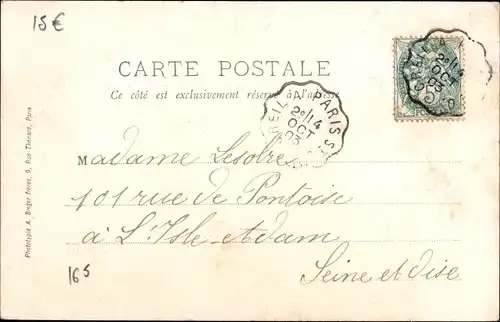 15 €
CARTE POSTALE
Ce côté est exclusivement réservé à l'adresse
CREIL A PARIS
2º/14
OCT
03
CREIL A
2º/14
OCT
03
Madame Lesobre
101 rue de Pontoise
à L'Isle et dam
Seine et Oise
165
Phototypie A. Breger Frères, 9, Rue Thénard, Paris